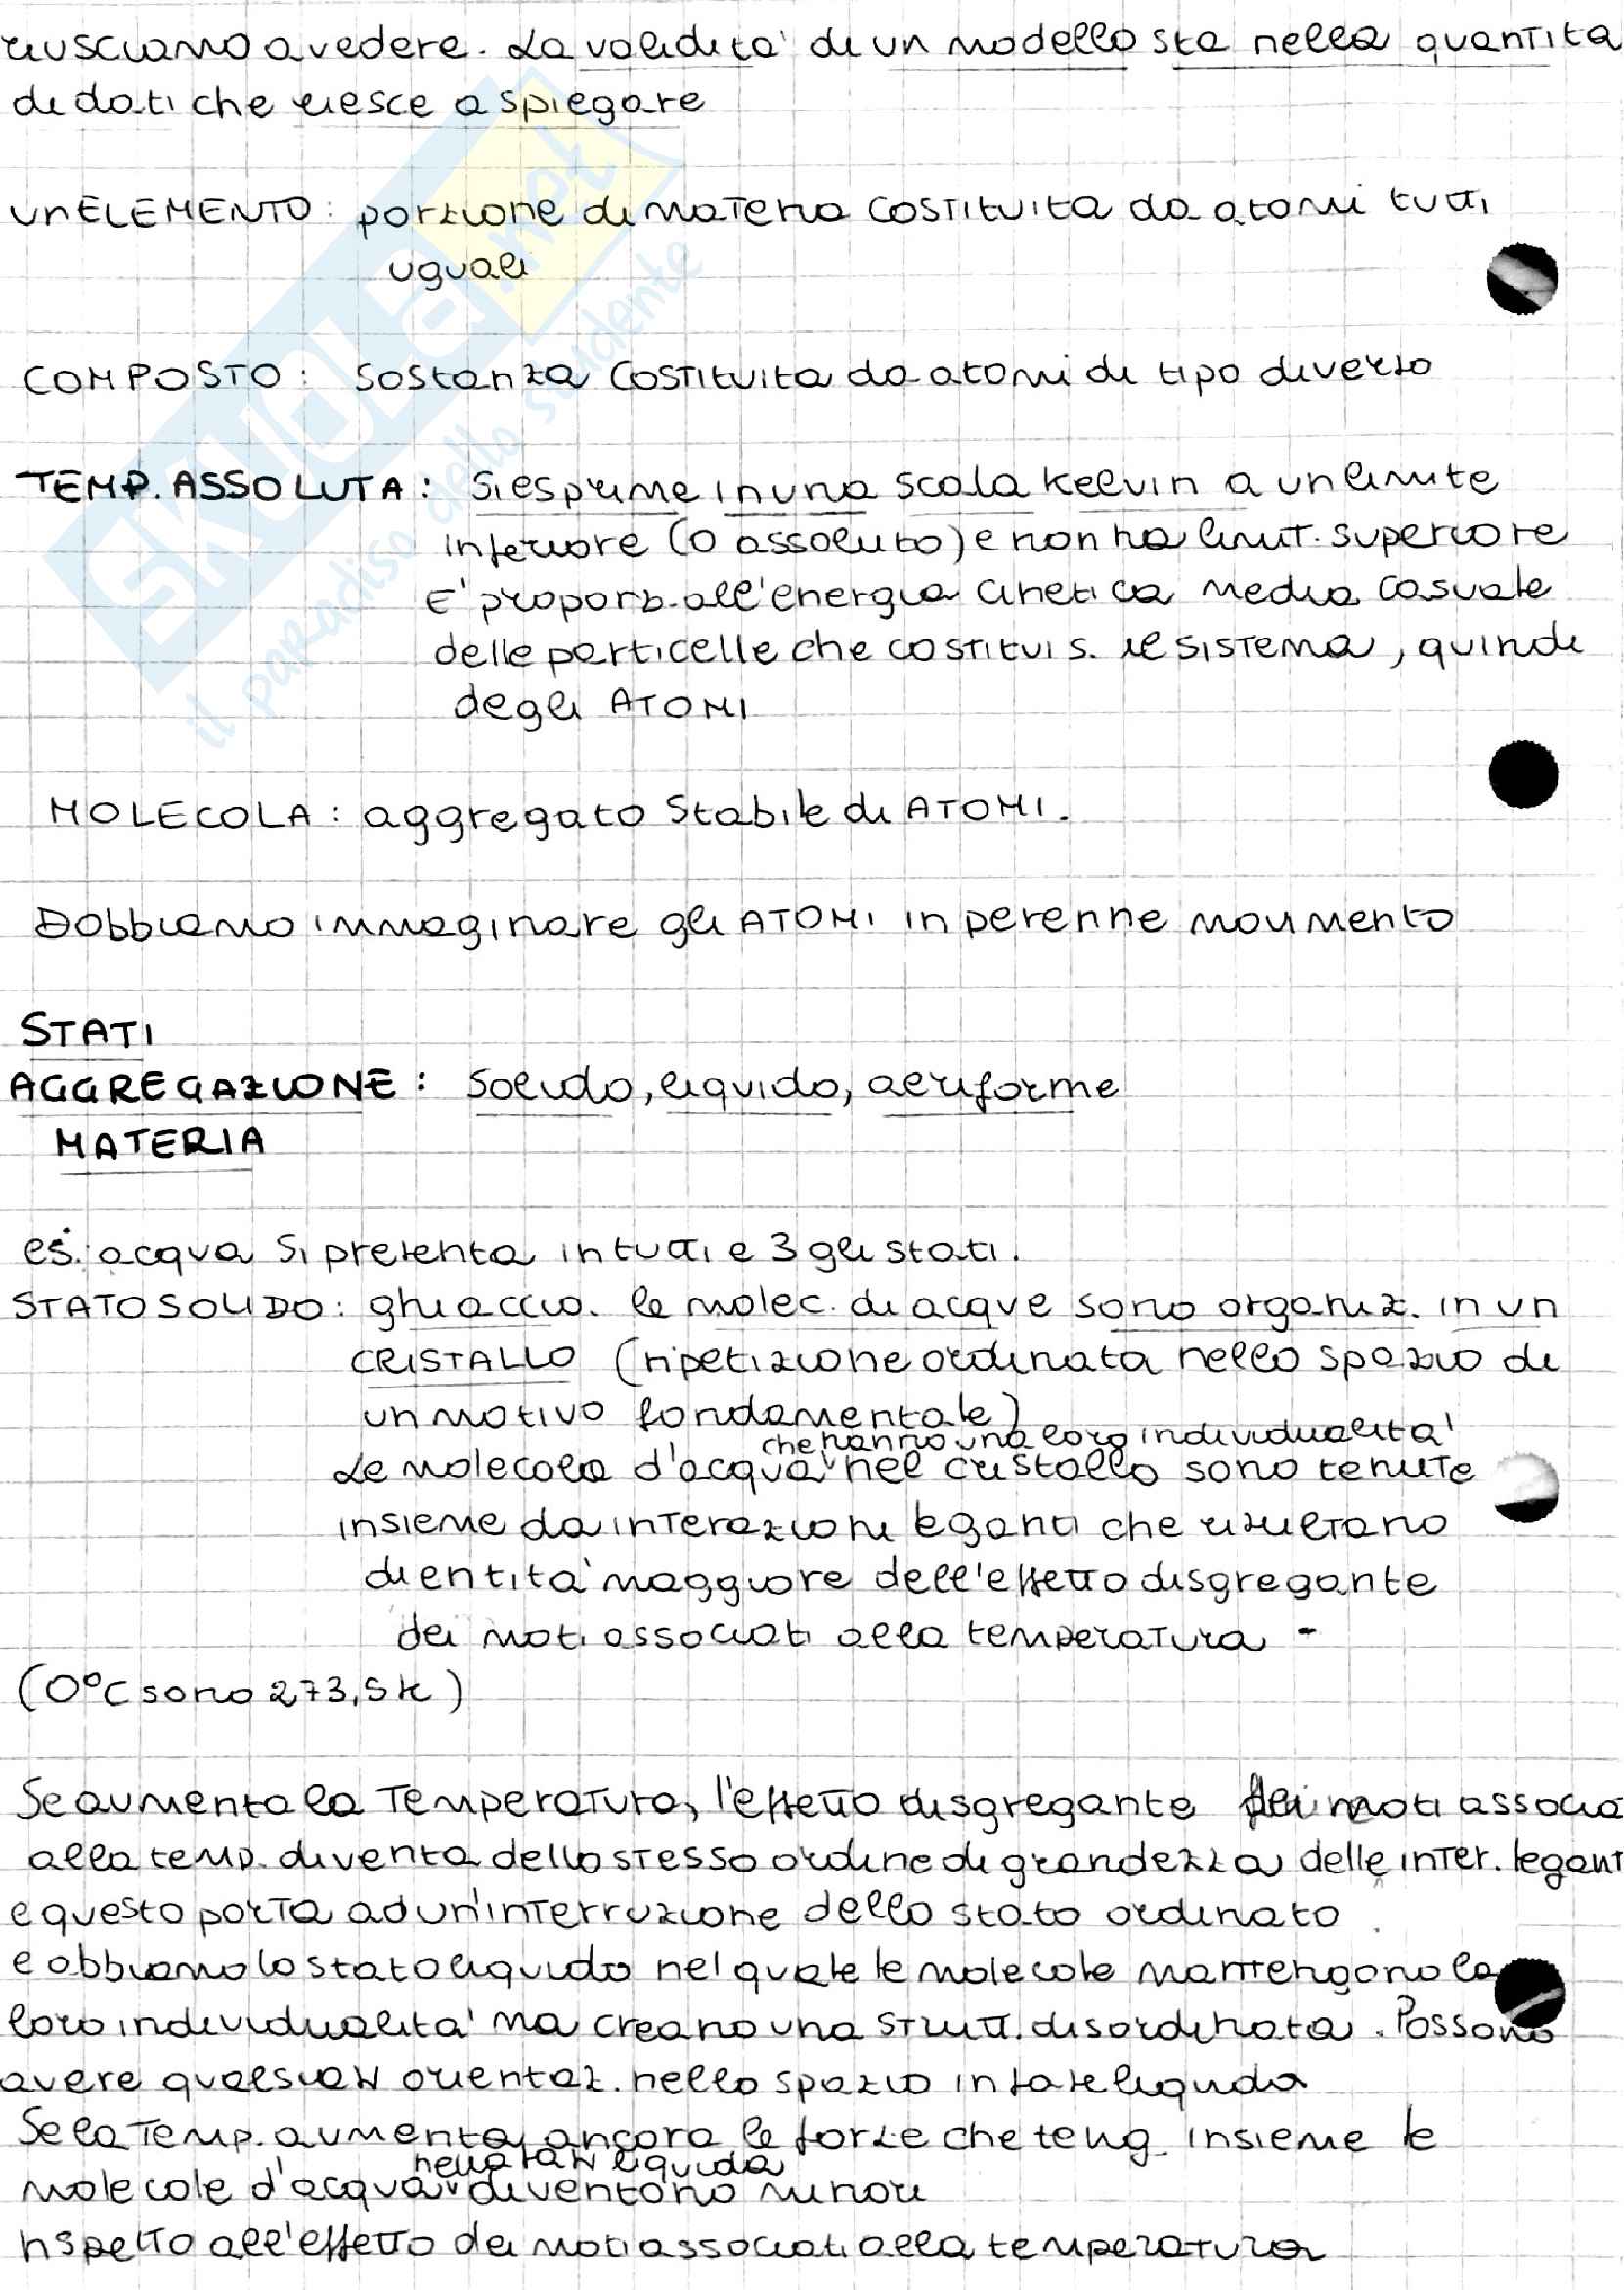 riusciamo a vedere. La validità di un modello sta nella quantità
di dati che riesce a spiegare
un ELEMENTO: porzione di materia costituita da atomi tutti
uguali
COMPOSTO: sostanza costituita da atomi di tipo diverso
TEMP. ASSOLUTA: si esprime in una scala Kelvin a un limite
inferiore (0 assoluto) e non ha limit. superiore
E' proporz. all'energia cinetica media casuale
delle particelle che costituis. il sistema, quindi
degli ATOMI
MOLECOLA: aggregato stabile di ATOMI.
Dobbiamo immaginare gli ATOMI in perenne movimento
STATI
AGGREGAZIONE: solido, liquido, aeriforme
MATERIA
es: acqua si presenta in tutti e 3 gli stati.
STATO SOLIDO: ghiaccio. le molec. di acque sono organiz. in un
CRISTALLO (ripetizione ordinata nello spazio di
un motivo fondamentale)
che hanno una loro individualità
Le molecola d'acqua nel cristallo sono tenute
insieme da interazioni leganti che risultano
di entità maggiore dell'effetto disgregante
dei moti associati alla temperatura -
(0°C sono 273,5 k)
Se aumenta la temperatura, l'effetto disgregante dei moti associa
alla temp. diventa dello stesso ordine di grandezza delle inter. legant
e questo porta ad un'interruzione dello stato ordinato.
e abbiamo lo stato liquido nel quale le molecole mantengono la
loro individualità ma creano una strutt. disordinata. Possono
avere qualsiasi orientaz. nello spazio in fase liquida
Se la temp. aumenta ancora le forze che teng. insieme le
nella fase liquida
molecole d'acqua diventano minori
rispetto all'effetto dei moti associati alla temperatura
skuola.net
il paradiso dello studente